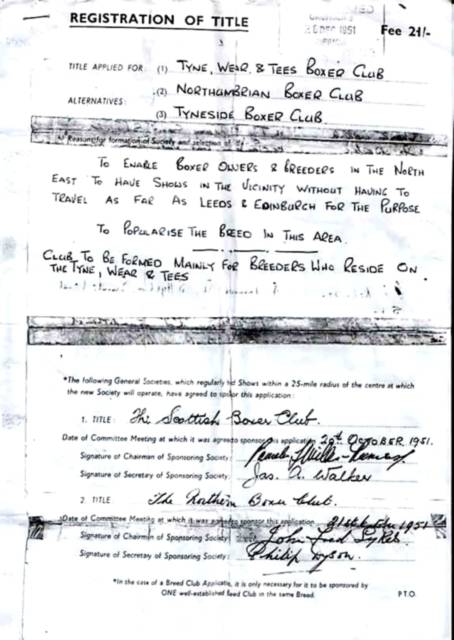 REGISTRATION OF TITLE
DEC 1951
Fee 21/-
TITLE APPLIED FOR: (1) TYNE, WEAR, & TEES BOXER CLUB
ALTERNATIVES: (2) NORTHUMBRIAN BOXER CLUB
(3) TYNESIDE BOXER CLUB.
Reasons for formation of Society and selection of
TO ENABLE BOXER OWNERS & BREEDERS IN THE NORTH
EAST TO HAVE SHOWS IN THE VICINITY WITHOUT HAVING TO
TRAVEL AS FAR AS LEEDS & EDINBURGH FOR THE PURPOSE
TO POPULARISE THE BREED IN THIS AREA.
CLUB TO BE FORMED MAINLY FOR BREEDERS WHO RESIDE ON
THE TYNE, WEAR & TEES
*The following General Societies, which regularly Shows within a 25-mile radius of the centre at which
the new Society will operate, have agreed to sponsor this application:
1. TITLE: The Scottish Boxer Club.
Date of Committee Meeting at which it was agreed to sponsor this application 20th OCTOBER 1951.
Signature of Chairman of Sponsoring Society: Pamela
Signature of Secretary of Sponsoring Society: Jas. A. Walker
2 TITLE The Northern Boxer Club.
*Date of Committee Meeting at which it was agreed to sponsor this application 1951
Signature of Chairman of Sponsoring Society: John Sykes
Signature of Secretary of Sponsoring Society: Philip Dyson.
*In the case of a Breed Club Applicatio, it is only necessary for it to be sponsored by
ONE well-established Breed Club in the same Breed.
P.T.O.